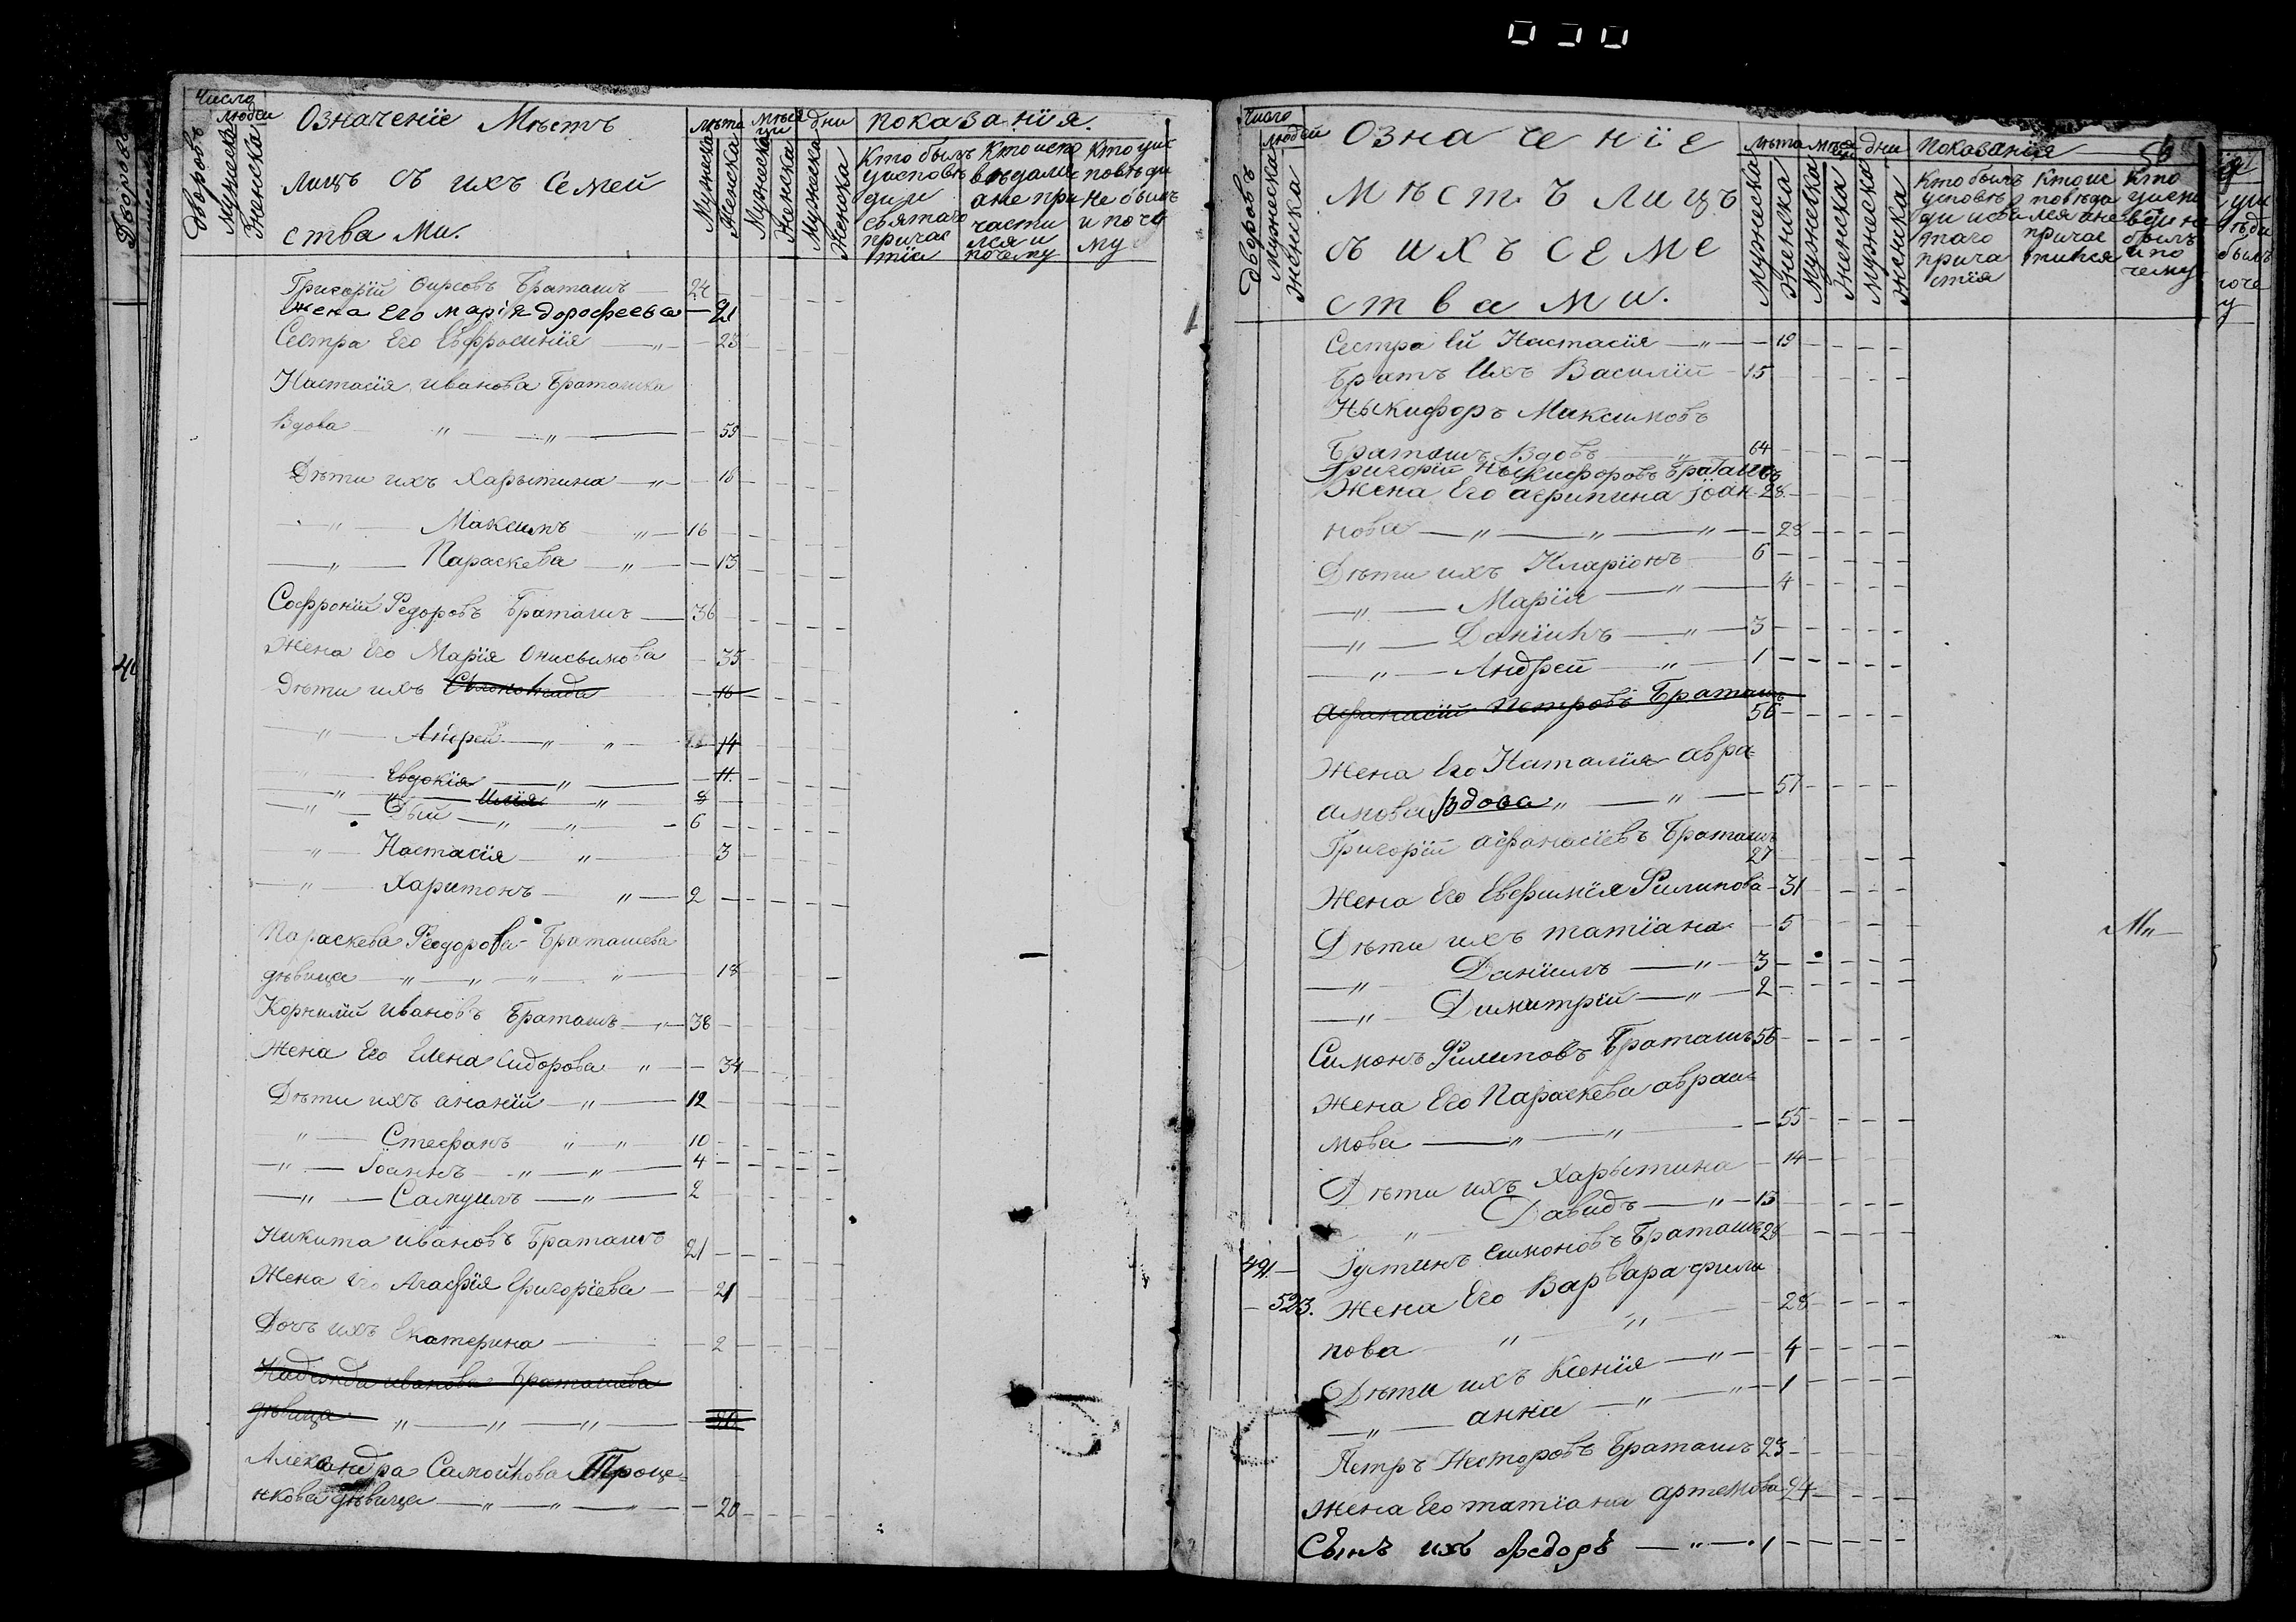 Число
людей
дворовъ
Мужеска
Женска
Означеніе Мѣстъ
лицъ съ ихъ Семей
ства Ми.
лѣта
мѣся
ци
дни
показанія.
Мужеска
Женска
Мужеска
Женска
Мужеска
Женска
Кто былъ
уисповѣ
ди и
святаго
причас
тія
Кто испо
вѣдалис
а не при
части
лся и
почему
Кто уис
повѣди
не былъ
и поче
му
Григорій Фирсовъ Браташъ 24
жена Его марія дорофеева 21
Сестра Его Евфросинія 23
Настасія иванова Браташка
Вдова 59
Дѣти ихъ Харытина 18
Максимъ 16
Параскева 13
Софроній Федоровъ Браташъ 36
Жена Его Марія Онисымова 35
Дѣти ихъ 16
Андрей 14
Евдокія 11
Илія 8
Дый 6
Настасія 3
Харитонъ 2
Параскева Феодорова Браташева
дѣвица 18
Корнилій ивановъ Браташъ 38
Жена Его Елена Сидорова 34
Дѣти ихъ ананій 12
Стефанъ 10
Іоаннъ 4
Самуилъ 2
Никита ивановъ Браташъ 21
Жена Его Агафія Григоріева 21
Дочь ихъ Екатерина 2
Надежда иванова Браташева
дѣвица
Александра Самойлова Троце=
нкова дѣвица 20
Число
людей
дворовъ
мужеска
женска
Означеніе
Мѣстъ лицъ
съ ихъ семе
ства ми.
лѣта
мѣся
ци
дни
показанія
56
Мужеска
Женска
Мужеска
Женска
Мужеска
Женска
Кто былъ
уисповѣ
ди и свя
таго
прича
стія
Кто ис
повѣда
лся а не
причас
тился
Кто
уиспо
вѣди не
былъ
и по
чему
Сестра Ей Настасія 19
Братъ Ихъ Василій 15
Ныкифоръ Максимовъ
Браташъ Вдовъ 64
Григорій Ныкифоровъ Браташъ
Жена Его агрипина Іоан 28
нова 28
Дѣти ихъ Иларіонъ 6
Марія 4
Даніилъ 3
Андрей 1
Афанасій Петровъ Браташъ
56
Жена Его Наталія авра=
амова Вдова 57
Григорій афанасіевъ Браташъ
27
Жена Его Евфимія Филипова 31
Дѣти ихъ татіана 5
Даніилъ 3
Димитрій 2
Симонъ Филиповъ Браташъ 56
Жена Его Параскева авраа=
мова 55
Дѣти ихъ Харытина 14
Давидъ 13
491. Іустинъ Симоновъ Браташъ 28
523. Жена Его Варвара фили
пова 28
Дѣти ихъ Ксенія 4
анна 1
Петръ Несторовъ Браташъ 23
Жена Его татіана артемова 24
Сынъ ихъ Федоръ 1